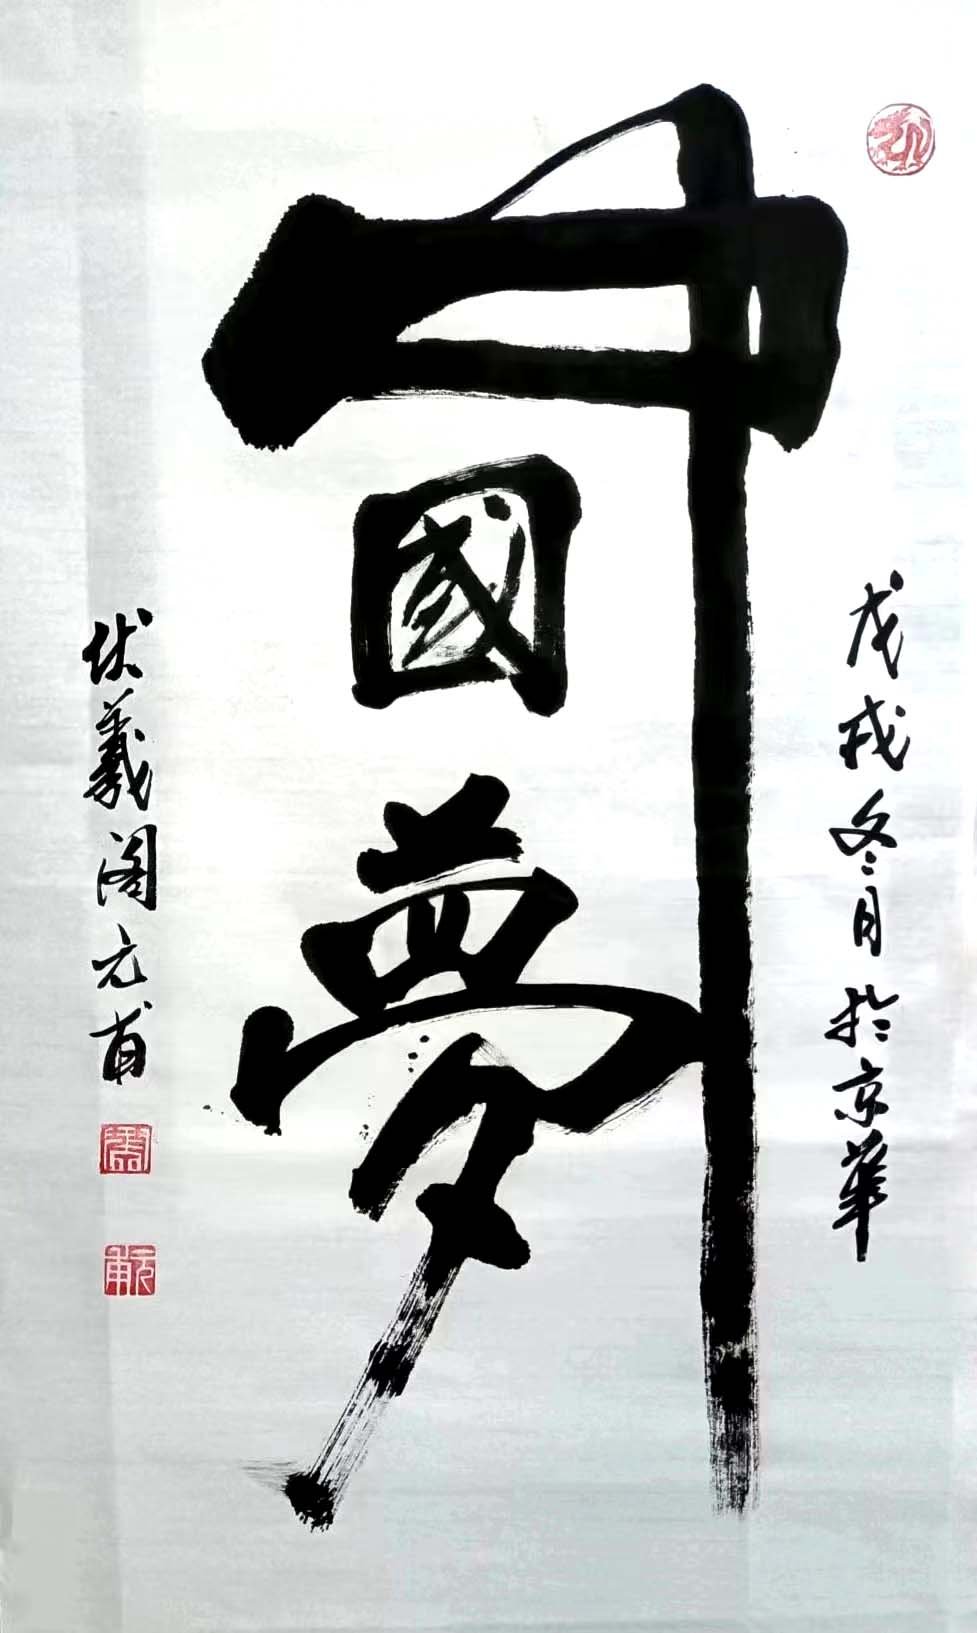 戊戌冬月於京華
中國夢
伏羲阁元甫